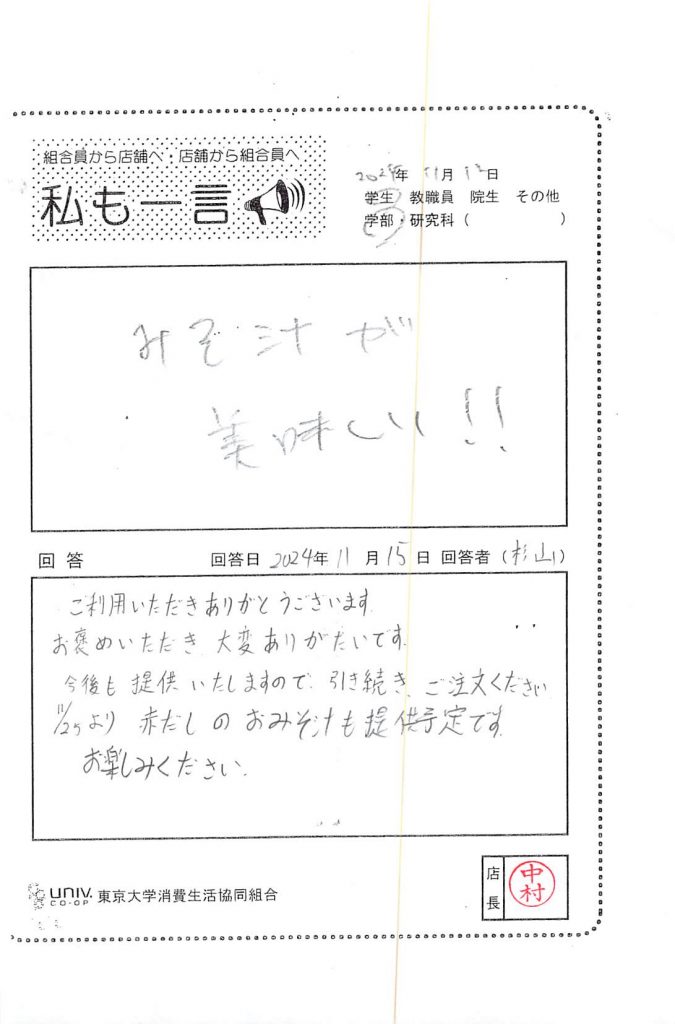 組合員から店舗へ・店舗から組合員へ
私も一言
2024年 11月12日
学生 教職員 院生 その他
学部・研究科( )
みそ汁が
美味しい!!
回答 回答日 2024年 11月 15日 回答者(杉山)
ご利用いただきありがとうございます。
お褒めいただき、大変ありがたいです。
今後も提供いたしますので、引き続き、ご注文ください
11/25より 赤だしのおみそ汁も提供予定です。
お楽しみください。
UNIV. CO-OP 東京大学消費生活協同組合
店長 中村